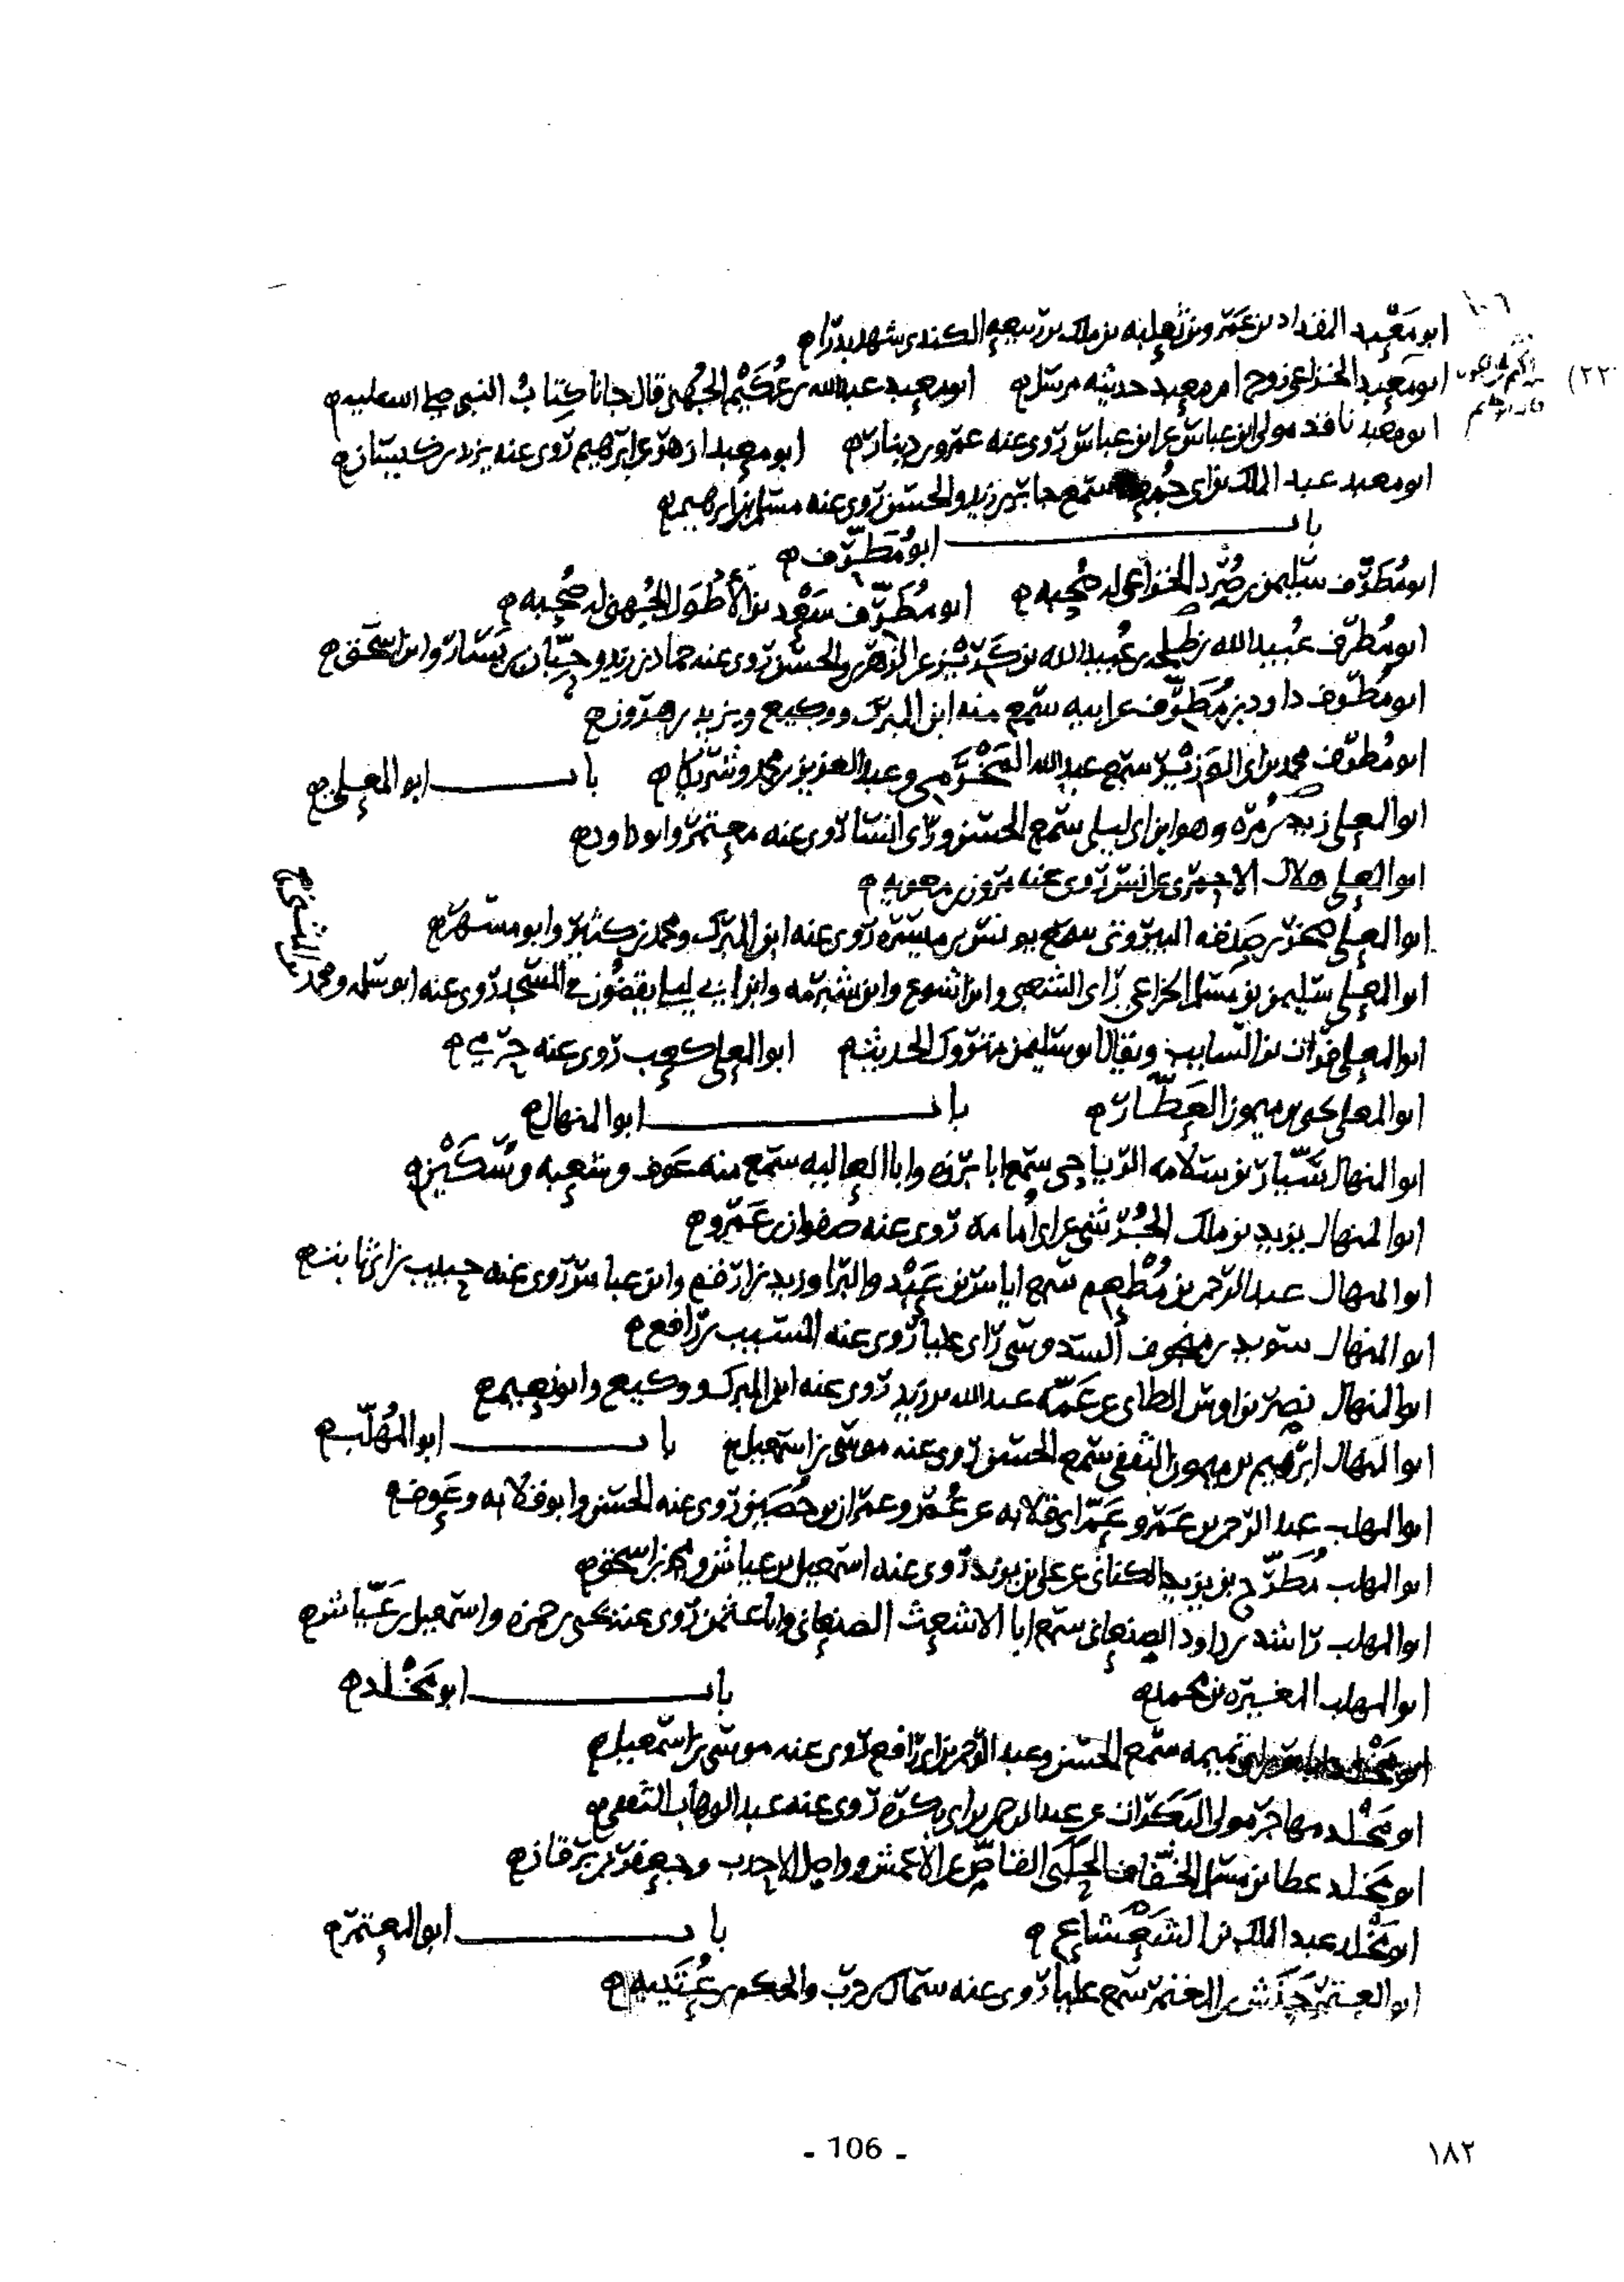 ابو مَعْبد المقداد بن عَمْرو بن ثعلبه بن ملك بن ربيعه الكندى شهد بدرا
ابو مَعْبد الخزاعى زوج ام معبد حديثه مرسل ابو معبد عبد الله بن عُكَيْم الجُهنى قال جانا كتابُ النبى صلى الله عليه
ابو معبد نافذ مولى ابن عباس عن ابن عباس روى عنه عمرو بن دينار ابو معبد ازهر عن ابرهيم روى عنه يزيد بن كيسان
ابو معبد عبد الملك بن ابى جُمعه سمع جابر بن زيد والحسن روى عنه مسلم بن ابرهيم
باب ابو مُطَرّف
ابو مُطَرّف سليمن بن صُرَد الخزاعى له صُحبه ابو مُطَرّف سَعْد بن الأطوَل الجُهنى له صُحبه
ابو مُطرّف عُبيد الله بن طلحه بن عُبيد الله بن كَرِيْز عن الزهرى والحسن روى عنه حماد بن زيد وحِبّان بن يسار وابن اسحق
ابو مُطرّف داود بن مُطَرّف عن ابيه سمع منه ابن المبرك ووكيع ويزيد بن هرون
ابو مُطرّف محمد بن ابى الوَزِيْر سمع عبد الله المَخْرَمى وعبد العزيز بن محمد وشريكا باب ابو المعلى
ابو المعلى زيد بن مُرّه وهو ابن ابى ليلى سمع الحسن وراى انسا روى عنه معتمر وابو داود
ابو المعلى هلال الاحمرى عن انس روى عنه مرون بن معويه
ابو المعلى صخر بن جندله البيروتى سمع يونس بن ميسره روى عنه ابن المبرك ومحمد بن كثير وابو مسهر
ابو المعلى سليمن بن مسلم الخزاعى راى الشعبى وابن اشوع وابن شبرمه وابن ابى ليلى يقضُون فى المسجد روى عنه ابو سلمه ومحمد
بن المثنى
ابو المعلى فرات بن السايب ويقال ابو سليمن متروك الحديث ابو المعلى كعب روى عنه حرمى
ابو المعلى يحيى بن ميمون العَطّار باب ابو المنهال
ابو المنهال سَيّار بن سلامه الرياحى سمع ابا برزه وابا العاليه سمع منه عوف وشعبه وسُكَيْن
ابو المنهال يزيد بن ملك الجُرَشى عن ابى اُمامه روى عنه صفوان بن عَمْرو
ابو المنهال عبد الرحمن بن مُطْعِم سمع اياس بن عَبْد والبرا وزيد بن ارقم وابن عباس روى عنه حبيب بن ابى ثابت
ابو المنهال سويد بن منجوف السدوسى راى عليا روى عنه المسيب بن رافع
ابو المنهال نصر بن اوس الطاى عن عَمّه عبد الله بن زيد روى عنه ابن المبرك ووكيع وابو نعيم
ابو المنهال ابرهيم بن ميمون الثقفى سمع الحسن روى عنه موسى بن اسمعيل باب ابو المُهلّب
ابو المهلب عبد الرحمن بن عَمرو عَمّ ابى قلابه عن عُمر وعمران بن حُصَين روى عنه الحسن وابو قلابه وعَوف
ابو المهلب مُطَرّح بن يزيد الكنانى عن على بن يزيد روى عنه اسمعيل بن عياش ومحمد بن اسحق
ابو المهلب راشد بن داود الصنعانى سمع ابا الاشعث الصنعانى وابا عثمن روى عنه يحيى بن حمزه واسمعيل بن عَيّاش
ابو المهلب المغيره بن محمد باب ابو مَخْلد
سمع الحسن وعبد الرحمن بن ابى رافع روى عنه موسى بن اسمعيل
ابو مَخْلد مهاجر مولى البَكَرات عن عبد الرحمن بن ابى بكره روى عنه عبد الوهاب الثقفى
ابو مَخْلد عطا بن مسلم الخفّاف الحلَبى القاصّ عن الاعمش وواصل الاحدب وجعفر بن برقان
ابو مَخْلد عبد الملك بن الشَعْشاع باب ابو المعتمر
ابو المعتمر حَنَش بن المعتمر سمع عليا روى عنه سماك بن حرب والحكم بن عُتَيبه
- 106 -
١٨٢